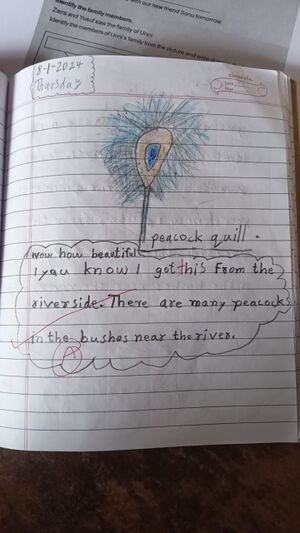 with our new friend Sonu tomorrow
Identify the family members.
Zaira and Yusuf saw the family of Unni
Identify the members of Unni's family from the picture and write
8-1-2024
Thursday
peacock quill.
wow how beautiful
1 you know I got this from the
riverside. There are many peacocks
in the bushes near the river.
A